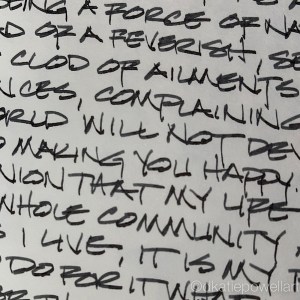 BEING A FORCE OF NA
D OF A FEVERISH, SE
CLOD OF AILMENTS
NCES, COMPLAINING
ORLD WILL NOT DEV
O MAKING YOU HAPPY.
NION THAT MY LIFE
WHOLE COMMUNITY
S I LIVE, IT IS MY
DO FOR IT WHAT
katiepowellart